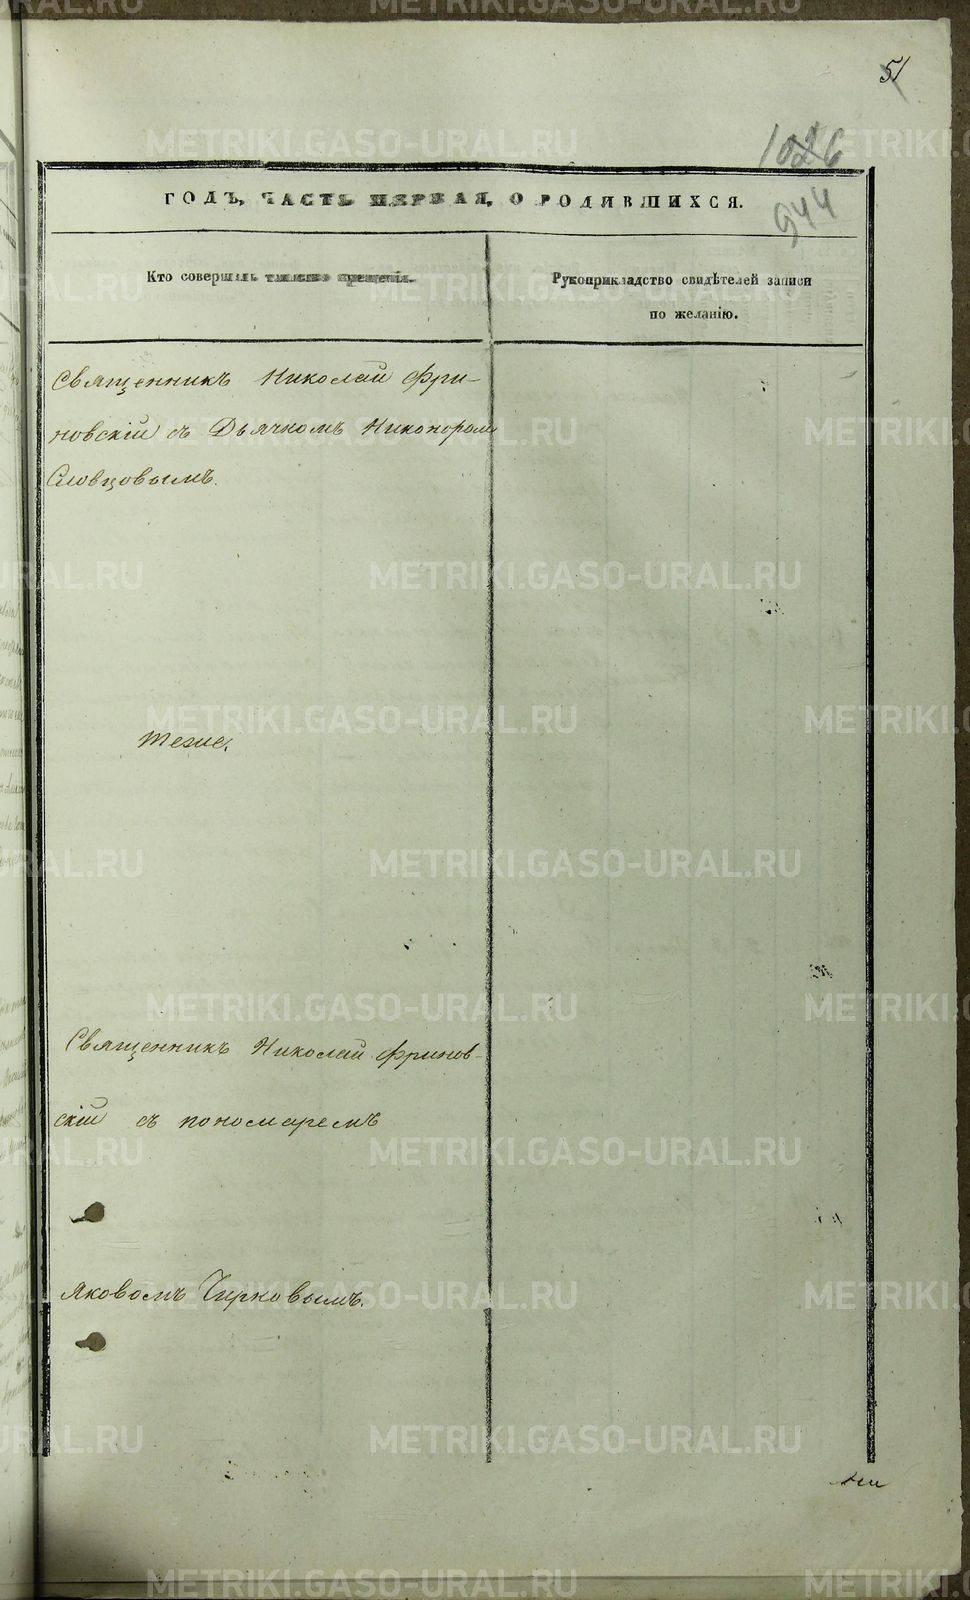 51
1026
944
ГОДЪ, ЧАСТЬ ПЕРВАЯ, О РОДИВШИХСЯ.
Кто совершалъ таинство крещенія.
Рукоприкладство свидѣтелей записи
по желанію.
Священникъ Николай Фри-
новскій съ Дьячкомъ Никонором
Словцовымъ.
Тезие.
Священникъ Николай Фринов-
скій съ пономаремъ
Яковомъ Чирковымъ.
METRIKI.GASO-URAL.RU